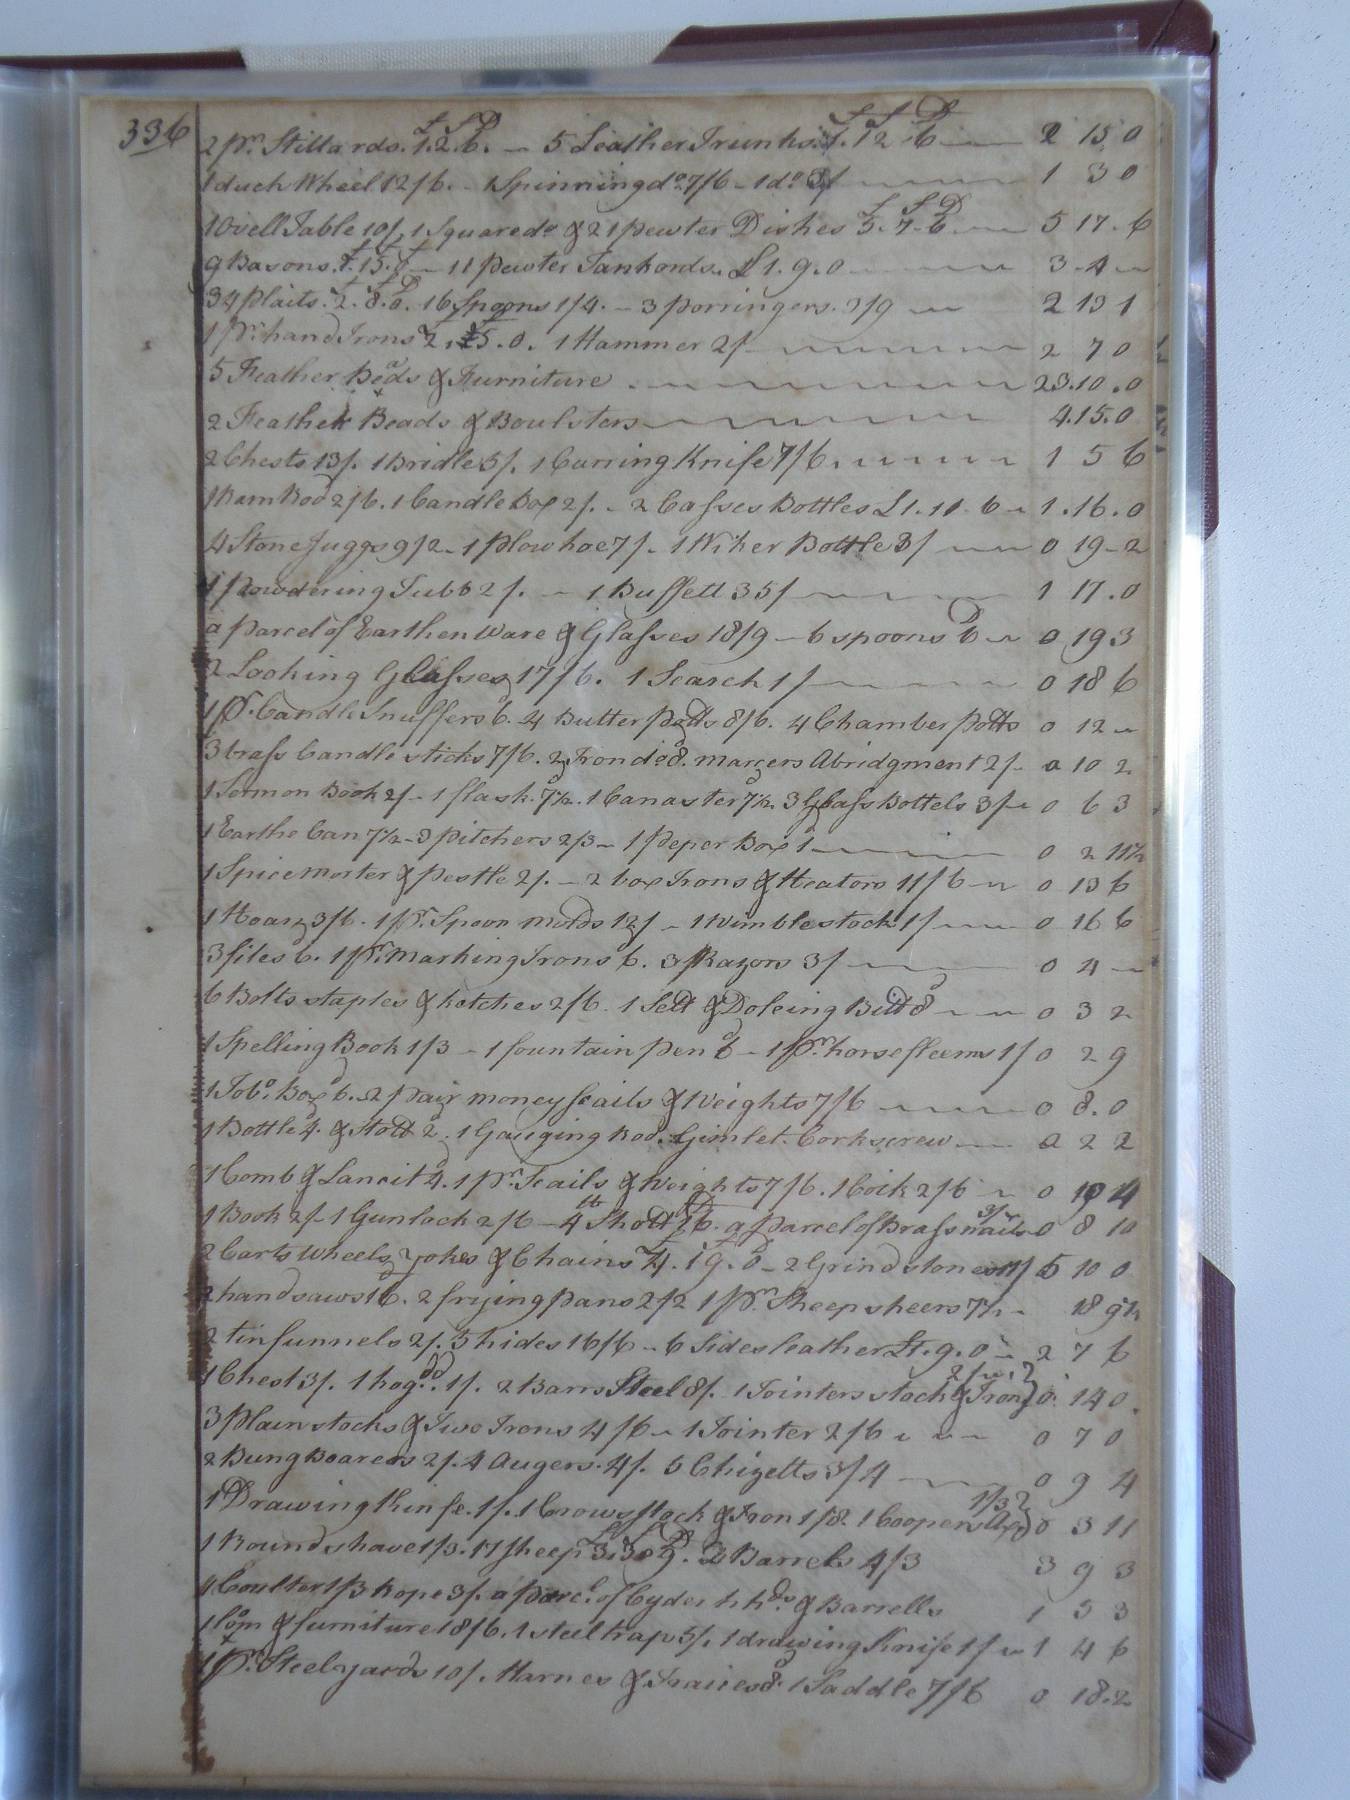 336
2 pr. Stillards. 1. 2. 6. — 5 Leather Trunks. 1. 12 6 — 2 15 0
1 duch Wheel 12/6. - 1 Spinning do. 7/6 - 1 do. 3/ — 1 3 0
1 Ovell Table 10/. 1 Square do & 21 pewter Dishes £5. 7. 6 — 5 17. 6
9 Basons. 1. 15. — 11 pewter Tankords. £1. 9. 0 — 3 - 4 -
34 plaits. 2. 8. 0. 16 Spoons 1/4. — 3 porringers. 3/9 — 2 13 1
1 pr. hand Irons 2. 5. 0. 1 Hammer 2/ — 2 7 0
5 Feather Beads & Furniture — 23. 10. 0
2 Feather Beads & Boulsters — 4. 15. 0
2 Chests 13/. 1 Bridle 5/. 1 Curring Knife 7/6. — 1 5 6
1 Ram Rod 2/6. 1 Candle Box 2/. - 2 Casses Bottles £1. 11. 6 - 1. 16. 0
4 Stone Juggs 9/2 - 1 plow hoe 7/. 1 Wiker Bottle 3/ — 0 19 - 2
1 powdering Tubb 2/. — 1 Buffett 35/ — 1 17. 0
a parcel of Earthen Ware & Glasses 18/9 — 6 spoons 6 — 0 19 3
2 Looking Glasses 17/6. 1 Search 1/ — 0 18 6
1 pr. Candle Snuffers 6. 4 Butter potts 8/6. 4 Chamber potts 0 12 -
3 brass Candle sticks 7/6. 2 Iron do 8. Abridgment 2/- 0 10 2
1 Sermon Book 2/- 1 flask. 7½. 1 Canaster 7½. 3 Glass Bottels 3/- 0 6 3
1 Earthe Can 7½ - 3 pitchers 2/3 - 1 peper Box 1 — 0 2 11½
1 Spice morter & pestle 2/. — 2 box Irons & Heators 11/6 — 0 13 6
1 3/6. 1 pr. Spoon molds 12/ - 1 Wimblestock 1/ — 0 16 6
3 files 6. 1 pr. Marking Irons 6. 3 Razors 3/ — 0 4 -
6 Bolts staples & hotches 2/6. 1 Sett & Doleing Bitt 8 — 0 3 2
1 Spelling Book 1/3 - 1 fountain pen 6 - 1 pr. horse fleems 1/ 0 2 9
1 Tobo. Box 6. 2 pair money scails & Weights 7/6 — 0 8. 0
1 Bottle 4. & 2. 1 Gauging Rod. Gimlet. Corkscrew — 0 2 2
1 Comb & Lancit 4. 1 pr. Scails & Weights 7/6. 1 Coik 2/6 - 0 4
1 Book 2/- 1 Gunlock 2/6 - 4 lb Shott a parcel of Brass nails 3/- 0 8 10
2 Carts Wheels yokes & Chains 4. 19. 0 - 2 Grindstones 11/ 5 10 0
2 handsaws 2 frying pans 2/2 1 pr. Sheep sheers 7½ - 18 9½
2 tin funnels 2/. 5 hides 16/6 - 6 Sides leather £1. 9. 0 - 2 7 6
1 Chest 3/. 1 hogdd. 1/. 2 Barrs Steel 8/. 1 Jointers stock & Iron 2/ 0. 14 0.
3 plain stocks & Two Irons 4/6 - 1 Jointer 2/6 — 0 7 0
2 Bung Boarers 2/. 4 Augers. 4/. 5 Chizells 3/4 — 0 9 4
1 Drawing Knife. 1/. 1 Crows stock & Iron 1/8. 1 Coopers Ax 1/3 0 3 11
1 Roundshave 1/3. 17 Sheep 3. 3. 9. 2 Barrels 4/3 3 9 3
1 Coulter 1/3 Rope 3/. a parcl. of Cyder hhds. & Barrells 1 5 3
1 loom & furniture 18/6. 1 steel trap 5/. 1 drawing Knife 1/ - 1 4 6
1 pr. Steelyards 10/. Harnes & Traices 8. 1 Saddle 7/6 0 18. 2